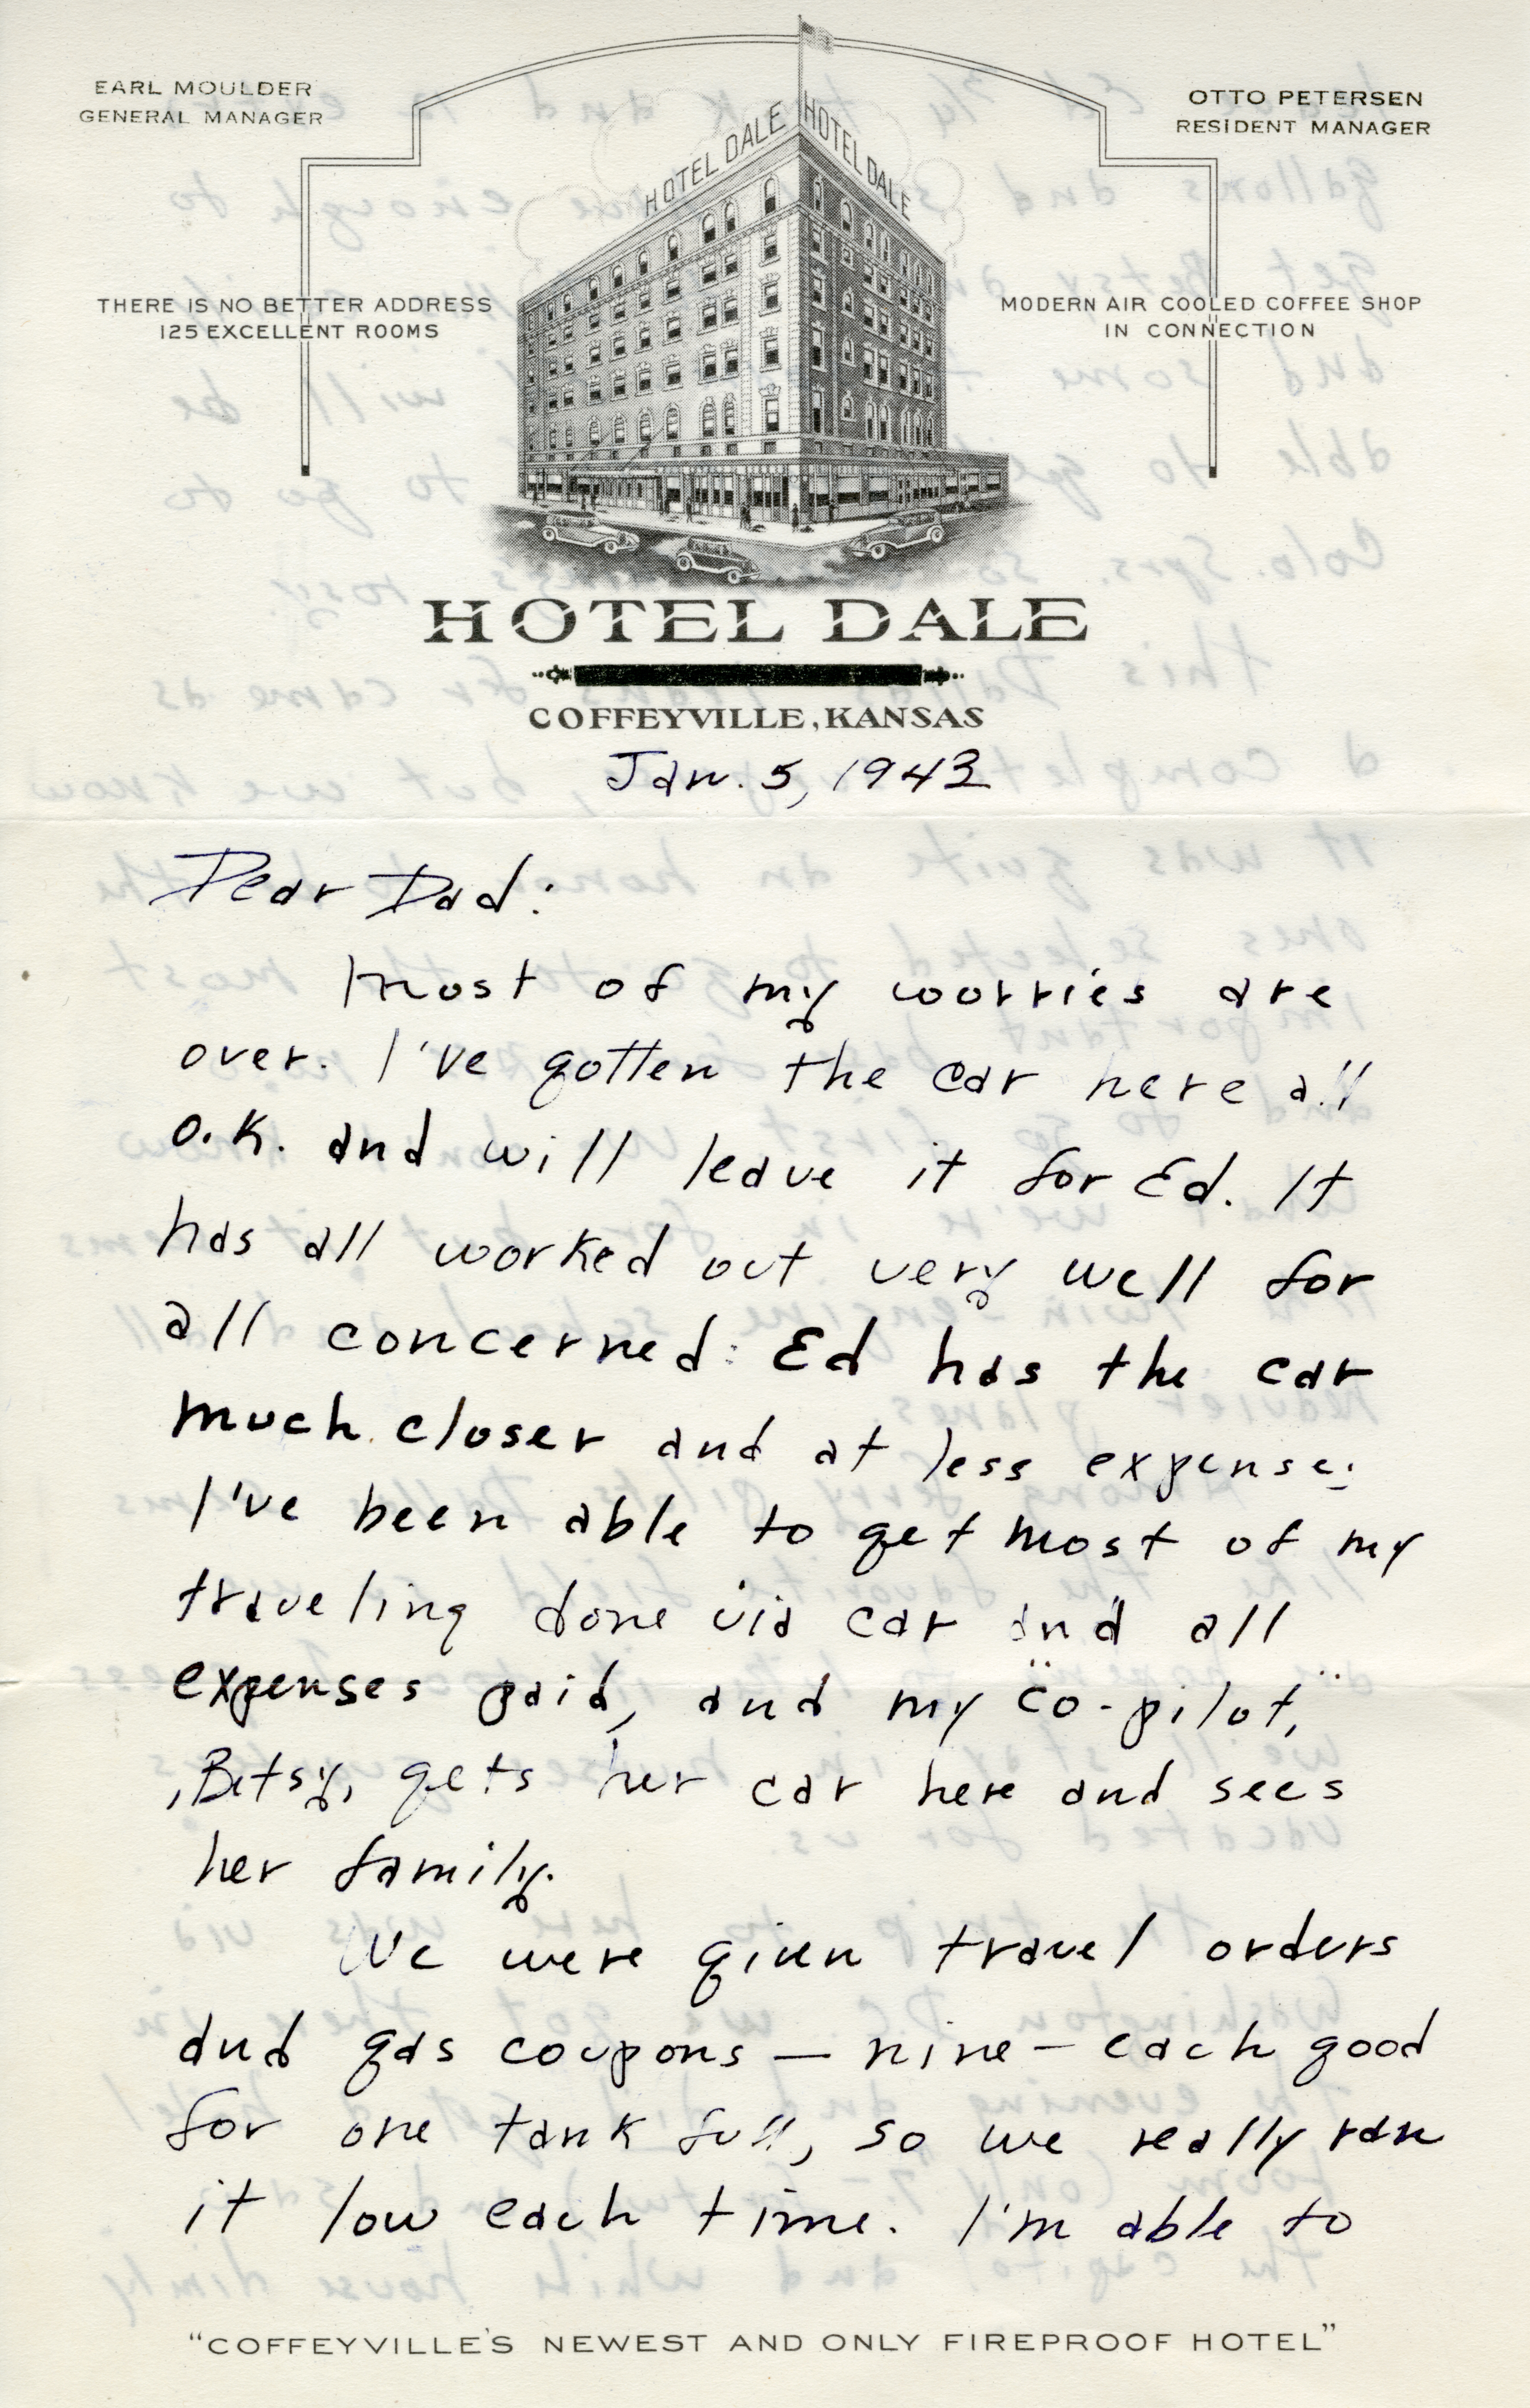 EARL MOULDER
GENERAL MANAGER
OTTO PETERSEN
RESIDENT MANAGER
HOTEL DALE HOTEL DALE
THERE IS NO BETTER ADDRESS
125 EXCELLENT ROOMS
MODERN AIR COOLED COFFEE SHOP
IN CONNECTION
HOTEL DALE
COFFEYVILLE, KANSAS
Jan. 5, 1943
Dear Dad:
Most of my worries are
over. I've gotten the car here all
O.K. and will leave it for Ed. It
has all worked out very well for
all concerned: Ed has the car
much closer and at less expense;
I've been able to get most of my
traveling done via car and all
expenses paid, and my "co-pilot,"
, Betsy, gets her car here and sees
her family.
We were given travel orders
and gas coupons — nine — each good
for one tank full, so we really ran
it low each time. I'm able to
"COFFEYVILLE'S NEWEST AND ONLY FIREPROOF HOTEL"